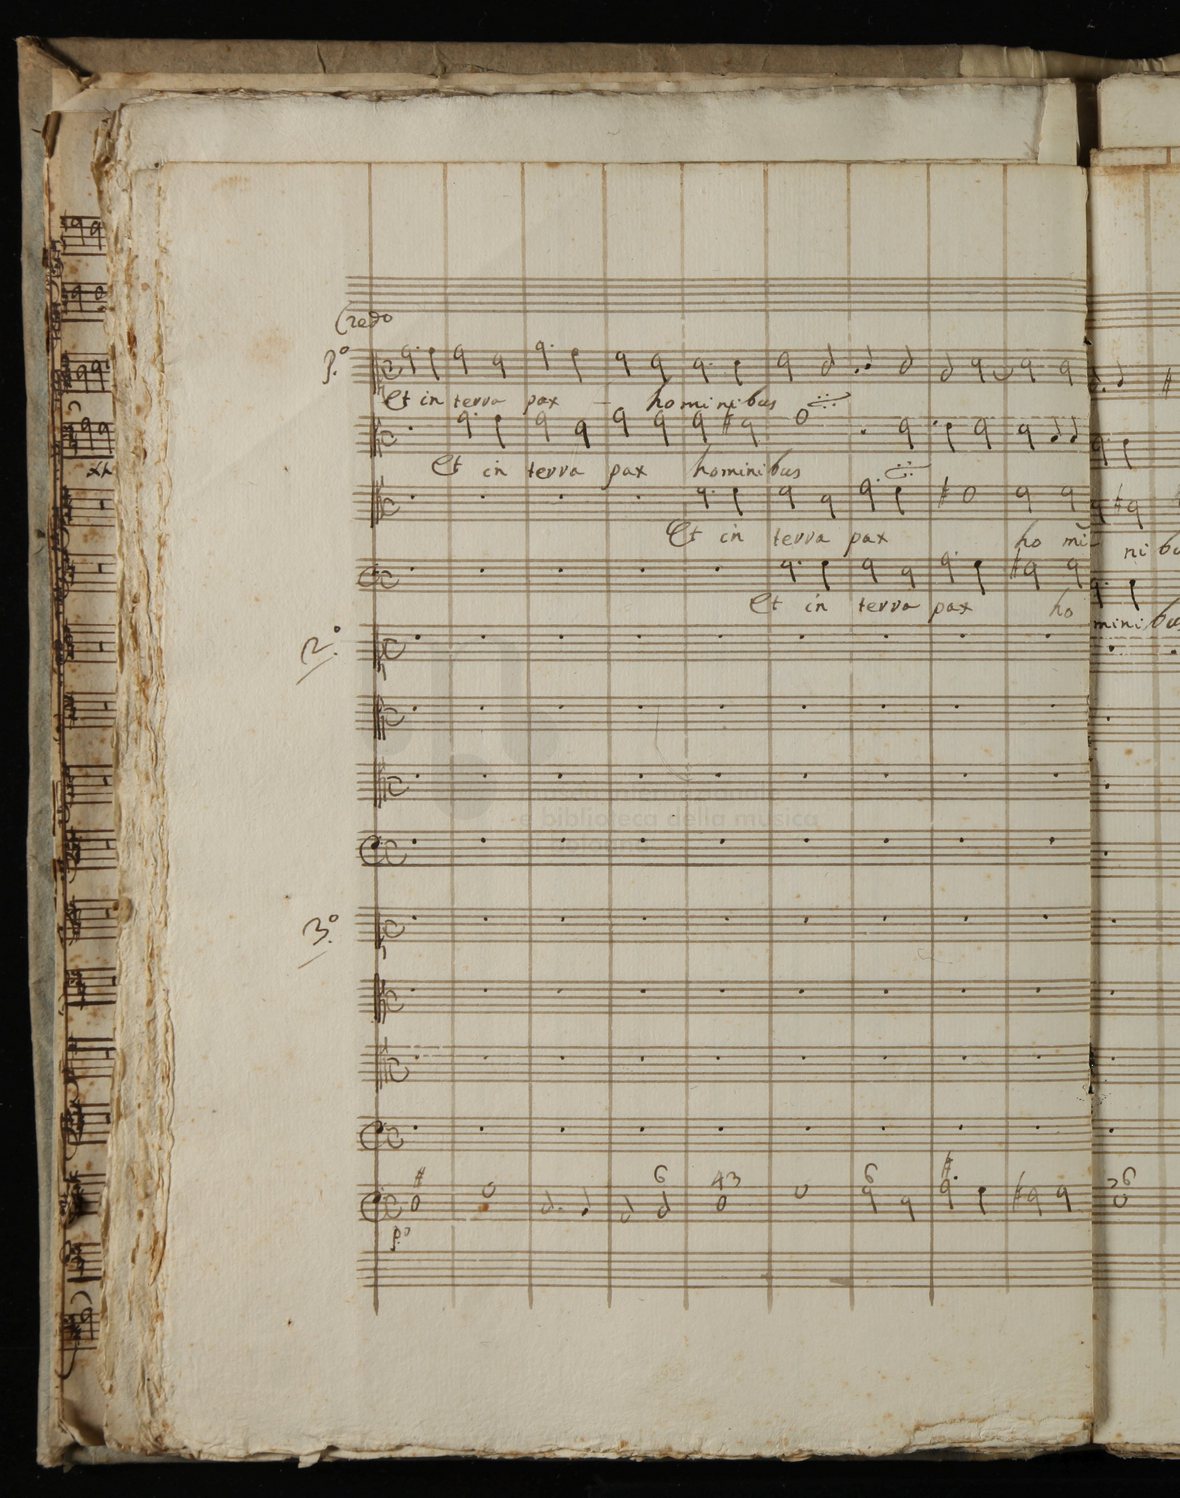 Credo
p.º
Et in terra pax hominibus
Et in terra pax hominibus
Et in terra pax ho mi- ni bu
Et in terra pax ho mini bus
2.º
e biblioteca della musica
3.º
6 43 6 6
p.º